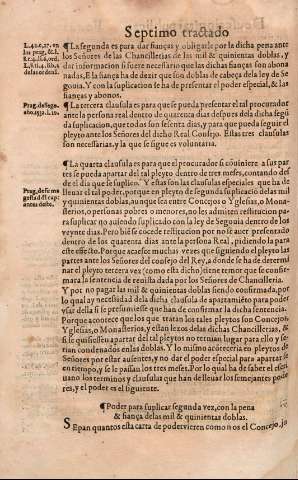 Septimo tractado
¶La segunda es para dar fianças y obligarse por la dicha pena ante
los Señores de las Chancillerias de las mil & quinientas doblas, y
dar informacion si fuere necessario que las dichas fianças son abo
nadas, E la fiança ha de dezir que son doblas de cabeça de la ley de Se
gouia. Y con la suplicacion se ha de presentar el poder especial, & las
fianças y abonos.
¶La tercera clausula es para que se pueda presentar el tal procurador
ante la persona real dentro de quarenta dias despues de la dicha segũ
da suplicacion, que todas son sesenta dias, y para que pueda seguir el
pleyto ante los Señores del dicho Real Consejo. Estas tres clausulas
son necessarias, y la que se sigue es voluntaria.
¶La quarta clausula es para que el procurador si cõuiniere a sus par
tes se pueda apartar del tal pleyto dentro de tres meses, contando des
de el dia que se suplico. Y estas son las clausulas especiales que ha de
lleuar el tal poder, porque en pleyto de segunda suplicacion de las mil
y quinientas doblas, aunque sea entre Concejos o Yglesias, o Mona-
sterios, o personas pobres o menores, no les admiten restitucion pa-
ra suplicar no auiendo suplicado con la ley de Segouia dentro de los
veynte dias. Pero bien se concede restitucion por no se auer presentado
dentro de los quarenta dias ante la persona Real, pidiendo la para
este efecto. Porque acaesce muchas vezes que siguiendo el pleyto las
partes ante los Señores del consejo del Rey, a donde se ha de determi
nar el pleyto tercera vez (como esta dicho) tiene temor que se confir-
mara la sentencia de reuista dada por los Señores de Chancilleria.
Y por no pagar las mil & quinientas doblas siendo confirmada, por
lo qual ay necessidad dela dicha clausula de apartamiẽto para poder
vsar della si se presumiesse que han de confirmar la dicha sentencia.
Porque acontece que los que tratan los tales pleytos son Concejos,
Yglesias, o Monasterios, y estan lexos delas dichas Chancillerias, &
si se quisiessen apartar del tal pleytos no ternian lugar para ello y se-
rian condenados en las doblas. Y lo mismo acontece en pleytos de
Señores por estar ausentes, y no dar el poder especial para apartarse
en tiempo, y se le passan los tres meses. Por lo qual ha de saber el escri
uano los terminos y clausulas que han de lleuar los semejantes pode
res, y el poder es el siguiente.
¶Poder para suplicar segunda vez, con la pena
& fiança delas mil & quinientas doblas.
Sepan quantos esta carta de poder vieren como nos el Concejo, ju